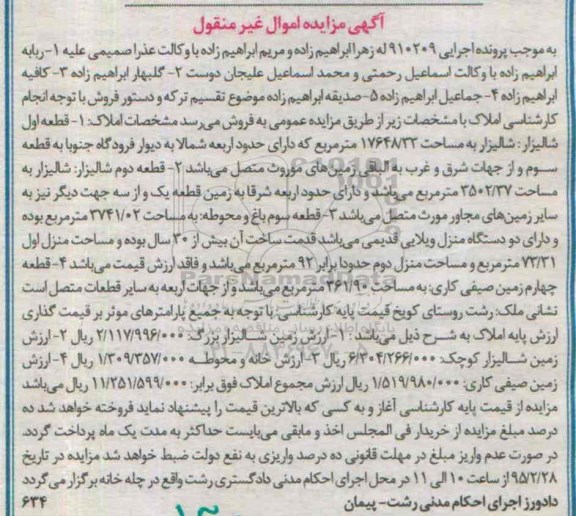 آگهی مزایده اموال غیر منقول
به موجب پرونده اجرایی ۹۱۰۲۰۹ له زهرا ابراهیم زاده و مریم ابراهیم زاده با وکالت عذرا صمیمی علیه ۱- ربابه
ابراهیم زاده با وکالت اسماعیل رحمتی و محمد اسماعیل علیجان دوست ۲- گلبهار ابراهیم زاده ۳- کافیه
ابراهیم زاده ۴- جماعیل ابراهیم زاده ۵- صدیقه ابراهیم زاده موضوع تقسیم ترکه و دستور فروش با توجه انجام
کارشناسی املاک با مشخصات زیر از طریق مزایده عمومی به فروش می‌رسد مشخصات املاک: ۱- قطعه اول
شالیزار: شالیزار به مساحت ۱۷۶۴۸/۳۳ مترمربع که دارای حدود اربعه شمالا به دیوار فرودگاه جنوبا به قطعه
سوم و از جهات شرق و غرب به الباقی زمین‌های موروث متصل می‌باشد ۲- قطعه دوم شالیزار: شالیزار به
مساحت ۳۵۰۲/۳۷ مترمربع می‌باشد و دارای حدود اربعه شرقا به زمین قطعه یک و از سه جهت دیگر نیز به
سایر زمین‌های مجاور مورث متصل می‌باشد ۳- قطعه سوم باغ و محوطه: به مساحت ۳۷۴۱/۰۲ مترمربع بوده
و دارای دو دستگاه منزل ویلایی قدیمی می‌باشد قدمت ساخت آن بیش از ۳۰ سال بوده و مساحت منزل اول
۷۳/۳۱ مترمربع و مساحت منزل دوم حدودا برابر ۹۲ مترمربع می‌باشد و فاقد ارزش قیمت می‌باشد ۴- قطعه
چهارم زمین صیفی کاری: به مساحت ۳۶۱/۹۰ مترمربع می‌باشد و از جهات اربعه به سایر قطعات متصل است
نشانی ملک: رشت روستای کویخ قیمت پایه کارشناسی: با توجه به جمیع پارامترهای موثر بر قیمت گذاری
ارزش پایه املاک به شرح ذیل می‌باشد: ۱- ارزش زمین شالیزار بزرگ: ۲/۱۱۷/۹۹۶/۰۰۰ ریال ۲- ارزش
زمین شالیزار کوچک: ۶/۳۰۴/۲۶۶/۰۰۰ ریال ۳- ارزش خانه و محوطه ۱/۳۰۹/۳۵۷/۰۰۰ ریال ۴- ارزش
زمین صیفی کاری: ۱/۵۱۹/۹۸۰/۰۰۰ ریال ارزش مجموع املاک فوق برابر: ۱۱/۲۵۱/۵۹۹/۰۰۰ ریال می‌باشد
مزایده از قیمت پایه کارشناسی آغاز و به کسی که بالاترین قیمت را پیشنهاد نماید فروخته خواهد شد ده
درصد مبلغ مزایده از خریدار فی المجلس اخذ و مابقی می‌بایست حداکثر به مدت یک ماه پرداخت گردد.
در صورت عدم واریز مبلغ در مهلت قانونی ده درصد واریزی به نفع دولت ضبط خواهد شد مزایده در تاریخ
۹۵/۲/۲۸ از ساعت ۱۰ الی ۱۱ در محل اجرای احکام مدنی دادگستری رشت واقع در چله خانه برگزار می‌گردد
دادورز اجرای احکام مدنی رشت- پیمان ۶۳۴
ParsNamadData